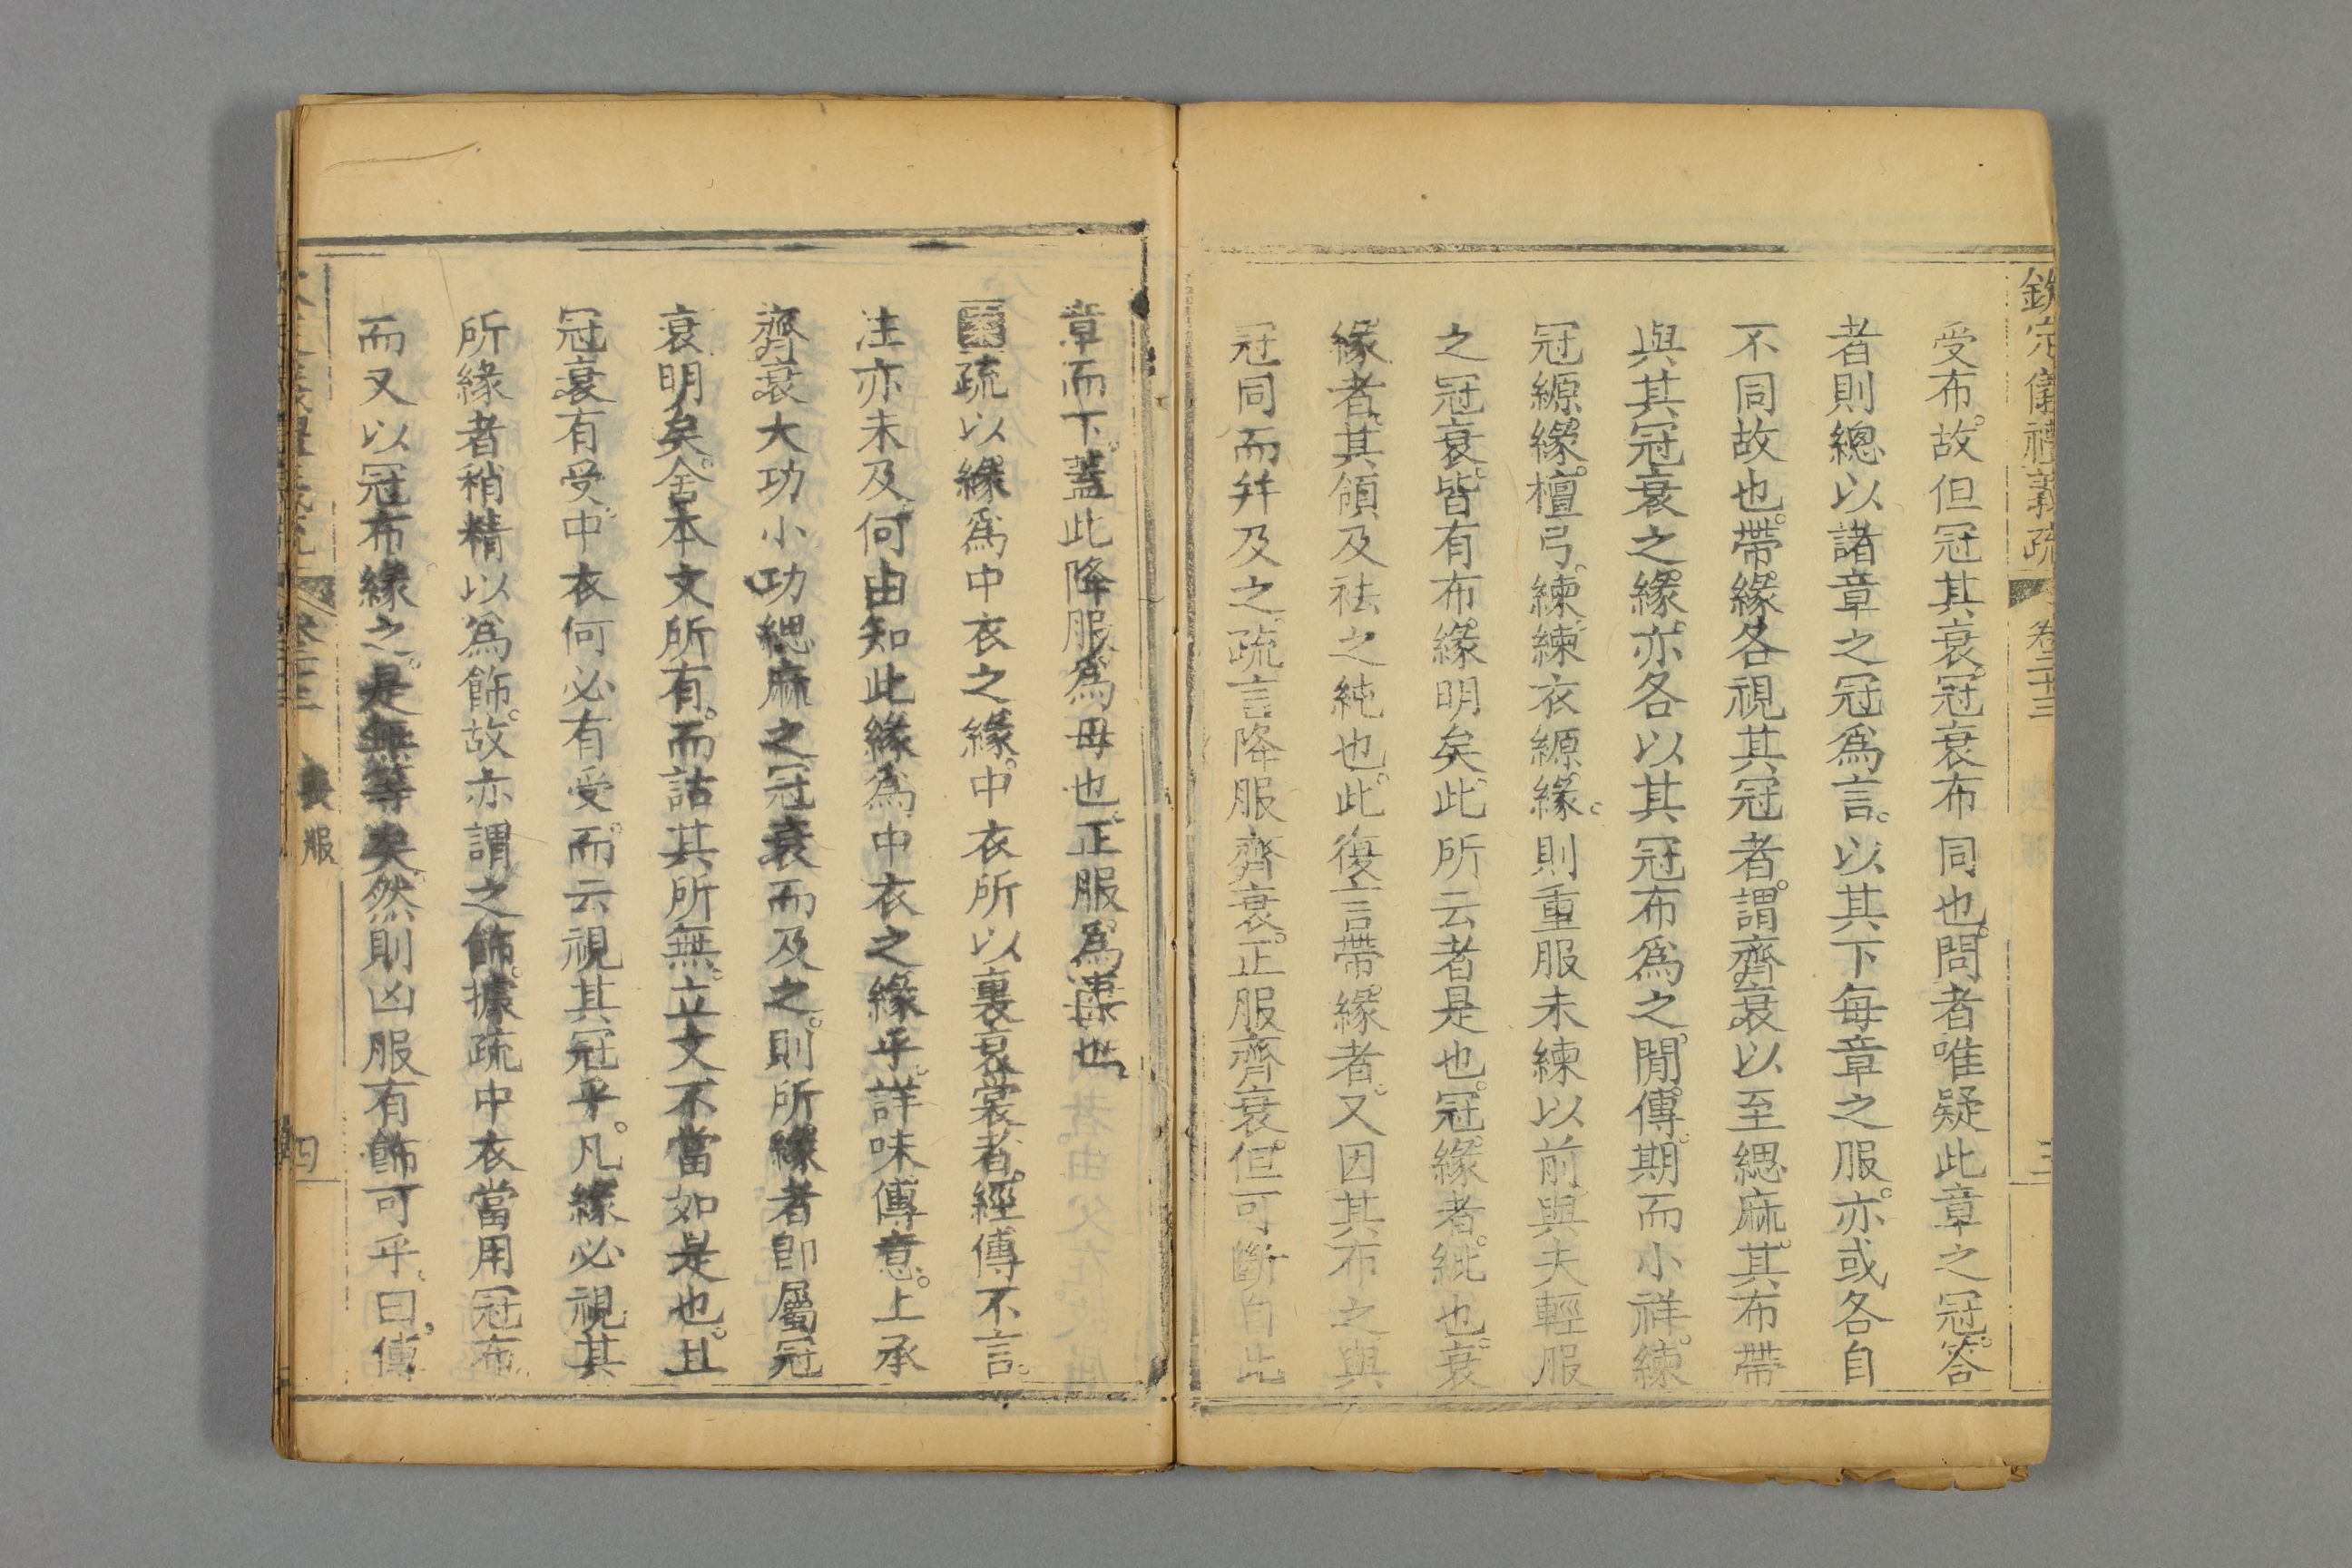 欽定儀禮義疏 卷二十三 三
受布。故但冠其衰。冠衰布同也。問者唯疑此章之冠。答
者則總以諸章之冠爲言。以其下每章之服。亦或各自
不同故也。帶緣各視其冠者。謂齊衰以至緦麻。其布帶
與其冠衰之緣。亦各以其冠布爲之。閒傳。期而小祥。練
冠縓緣。檀弓。練。練衣縓緣。則重服未練以前與夫輕服
之冠衰。皆有布緣明矣。此所云者是也。冠緣者。紕也。衰
緣者。其領及袪之純也。此復言帶緣者。又因其布之與
冠同而幷及之。疏言降服齊衰。正服齊衰。但可斷自此
章而下。蓋此降服爲母也。正服。爲妻也。
疏以緣爲中衣之緣。中衣所以裏衰裳者。經傳不言。
注亦未及。何由知此緣爲中衣之緣乎。詳味傳意。上承
齊衰大功小功緦麻之冠衰而及之。則所緣者卽屬冠
衰明矣。舍本文所有。而詁其所無。立文不當如是也。且
冠衰有受。中衣何必有受。而云視其冠乎。凡緣必視其
所緣者稍精以爲飾。故亦謂之飾。據疏中衣當用冠布
而又以冠布緣之。是無等矣。然則凶服有飾可乎。曰。傳
喪服 四